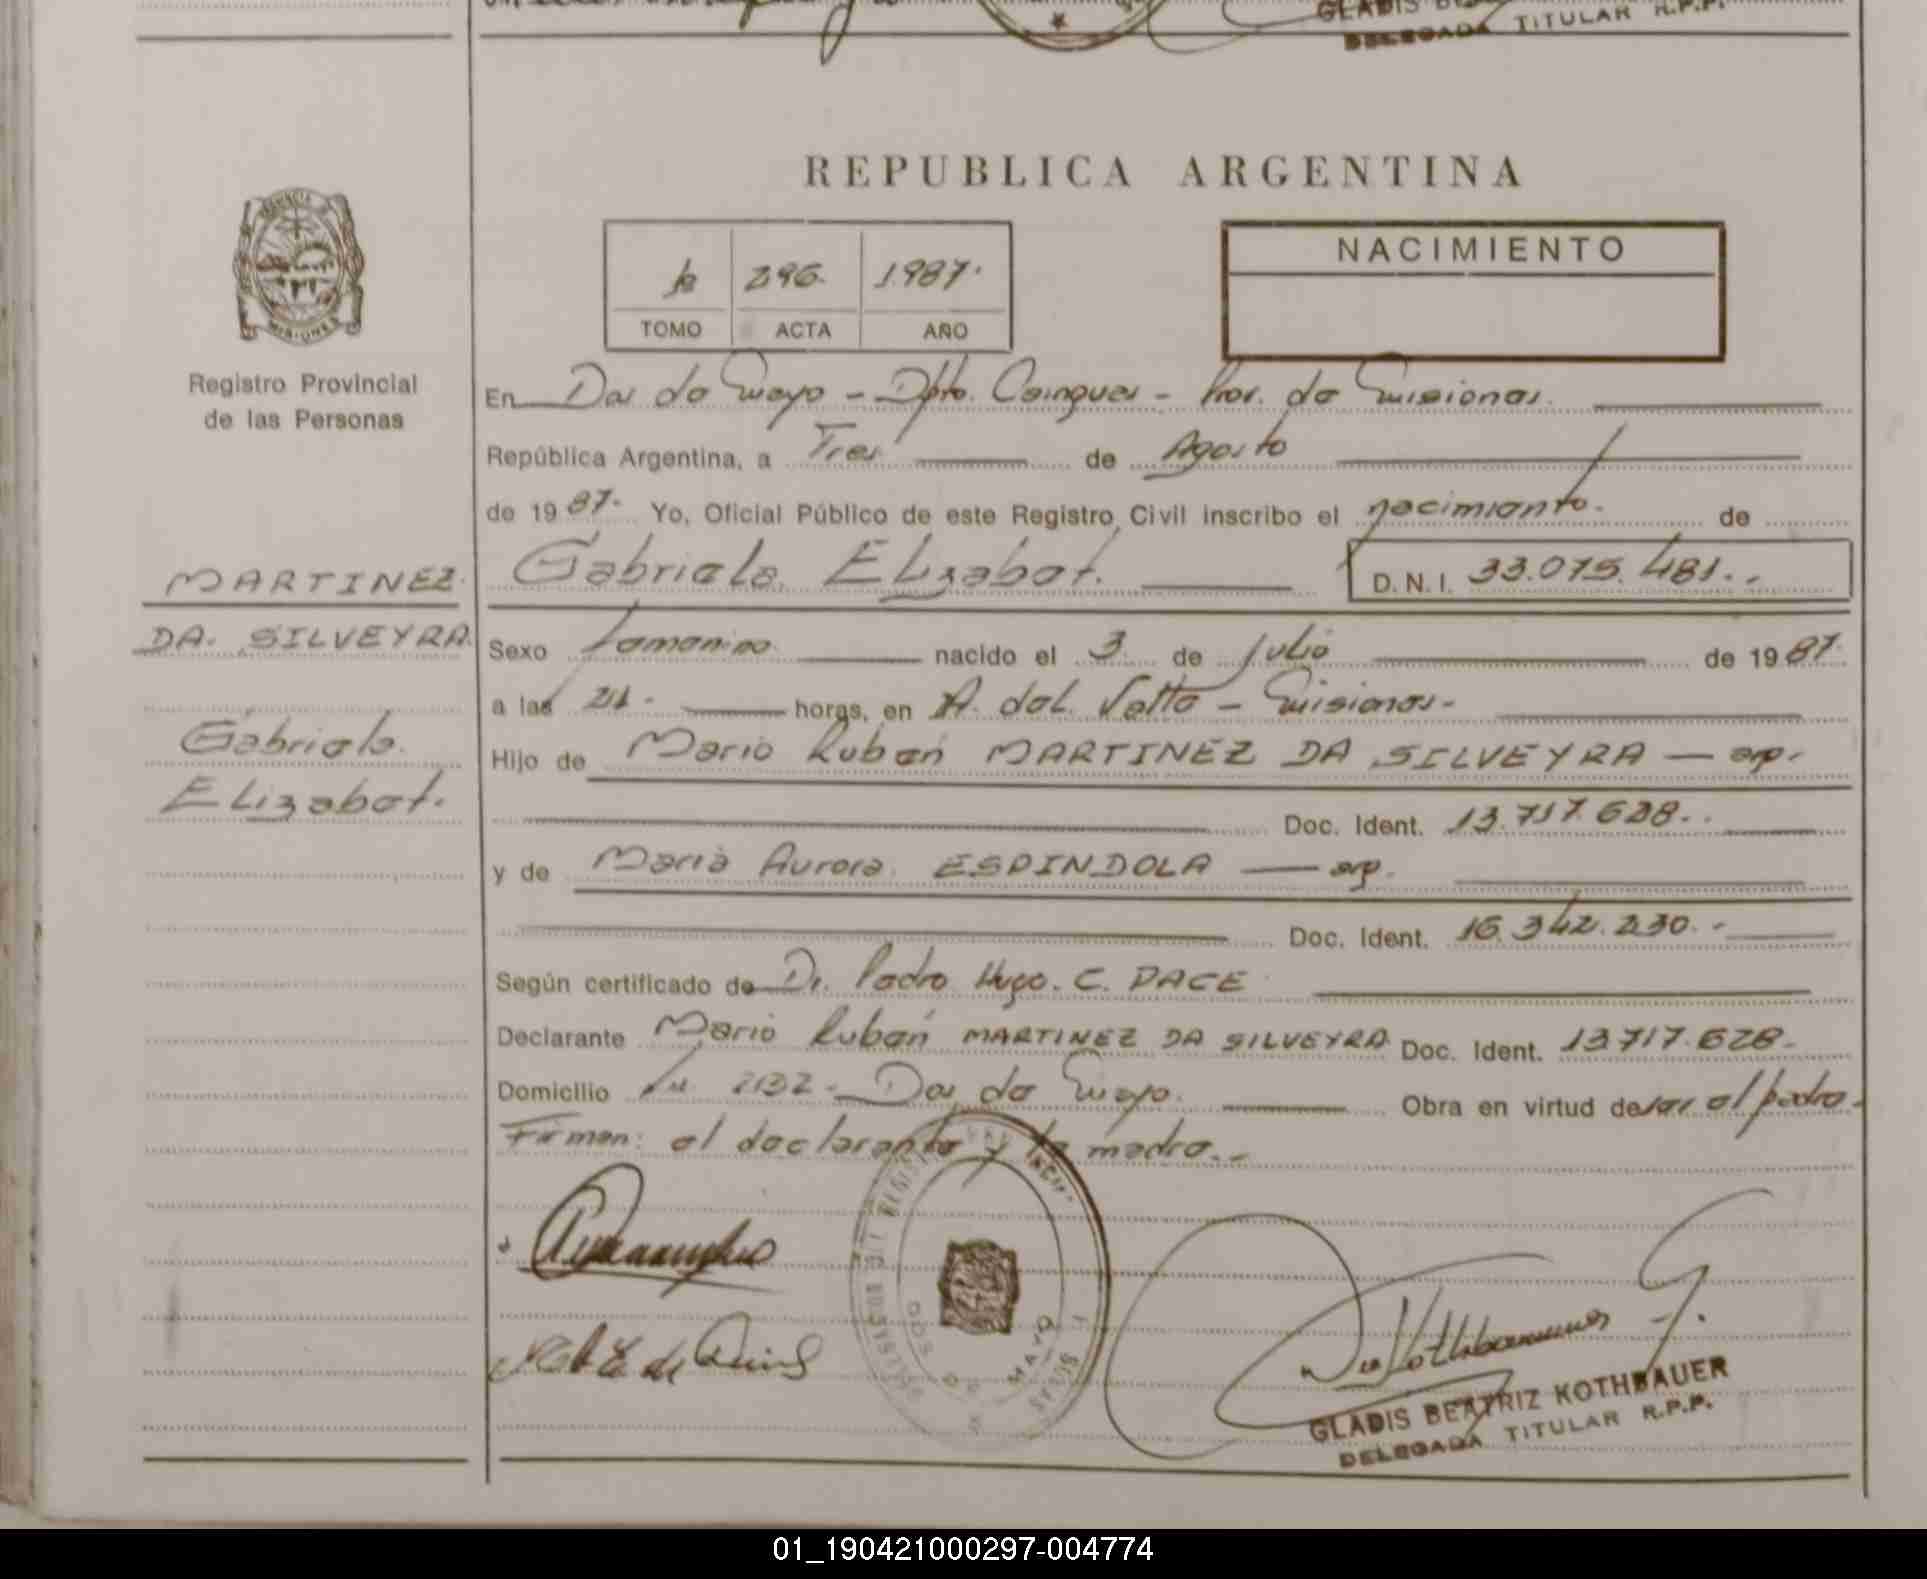 GLADIS
DELEGADA TITULAR R.P.P.
REPUBLICA ARGENTINA
296. 1.987.
TOMO ACTA AÑO
NACIMIENTO
MISIONES
Registro Provincial
de las Personas
En Dos de Mayo - Dpto. Cainguas - Prov. de Misiones.
República Argentina, a Tres de Agosto
de 19 87. Yo, Oficial Público de este Registro Civil inscribo el nacimiento. de
Gabriela Elizabet. D.N.I. 33.075.481.-
MARTINEZ
DA SILVEYRA
Gabriela
Elizabet.
Sexo femenino nacido el 3 de julio de 19 87.
a las 21. horas, en A. del Valle - Misiones.
Hijo de Mario Rubén MARTINEZ DA SILVEYRA — arg.
Doc. Ident. 13.717.628.
y de María Aurora ESPINDOLA — arg.
Doc. Ident. 16.342.230.-
Según certificado de Dr. Pedro Hugo. C. PACE
Declarante Mario Rubén MARTINEZ DA SILVEYRA Doc. Ident. 13.717.628.
Domicilio Dos de Mayo. Obra en virtud de ser el padre.
Firman: el declarante y la madre.-
DOS DE MAYO
GLADIS BEATRIZ KOTHBAUER
DELEGADA TITULAR R.P.P.
01_190421000297-004774